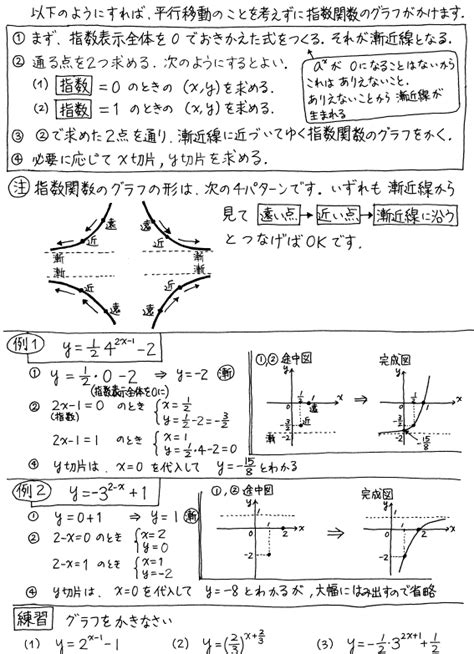 以下のようにすれば、平行移動のことを考えずに指数関数のグラフがかけます。
① まず、指数表示全体を0でおきかえた式をつくる。それが漸近線となる。
② 通る点を2つ求める。次のようにするとよい。
(1) 指数 = 0 のときの (x,y)を求める。
(2) 指数 = 1 のときの (x,y)を求める。
aˣが 0になることはないから
これは ありえないこと。
ありえないことから 漸近線が
生まれる
③ ②で求めた2点を通り、漸近線に近づいてゆく指数関数のグラフをかく。
④ 必要に応じて x切片, y切片を求める。
注 指数関数のグラフの形は、次の4パターンです。いずれも 漸近線から
見て 遠い点 → 近い点 → 漸近線に沿う
とつなげばOKです。
遠 遠
近 近
漸 漸
漸 漸
近 近
遠 遠
例1 y=1/2 4^(2x-1) -2
① y=1/2・0 -2 ⇒ y=-2 漸
(指数表示全体を0に)
② 2x-1=0 のとき { x=1/2
(指数) y=1/2-2=-3/2
2x-1=1 のとき { x=1
y=1/2・4-2=0
④ y切片は、x=0 を代入して y=-15/8 とわかる
①,② 途中図
y
1/2 1
0 遠 x
-3/2 近
漸 -2
⇒
完成図
y
1/2 1
0 x
-3/2
-2 -15/8
例2 y=-3^(2-x) +1
① y=0+1 ⇒ y=1 漸
② 2-x=0 のとき { x=2
y=0
2-x=1 のとき { x=1
y=-2
④ y切片は、x=0を代入して y=-8とわかるが、大幅にはみ出すので省略
①,② 途中図
y
1
1
0 2 x
-2
⇒
完成図
y
1
1
0 2 x
-2
練習 グラフをかきなさい
(1) y=2^(x-1) -1 (2) y=(2/3)^(x+2/3) (3) y=-1/2・3^(2x+1) +1/2